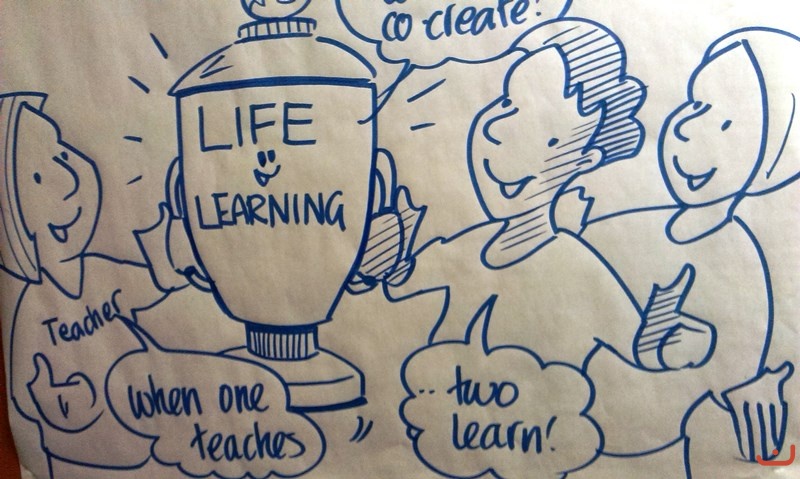 co create!
LIFE
LEARNING
Teacher
when one
teaches
.. two
learn!